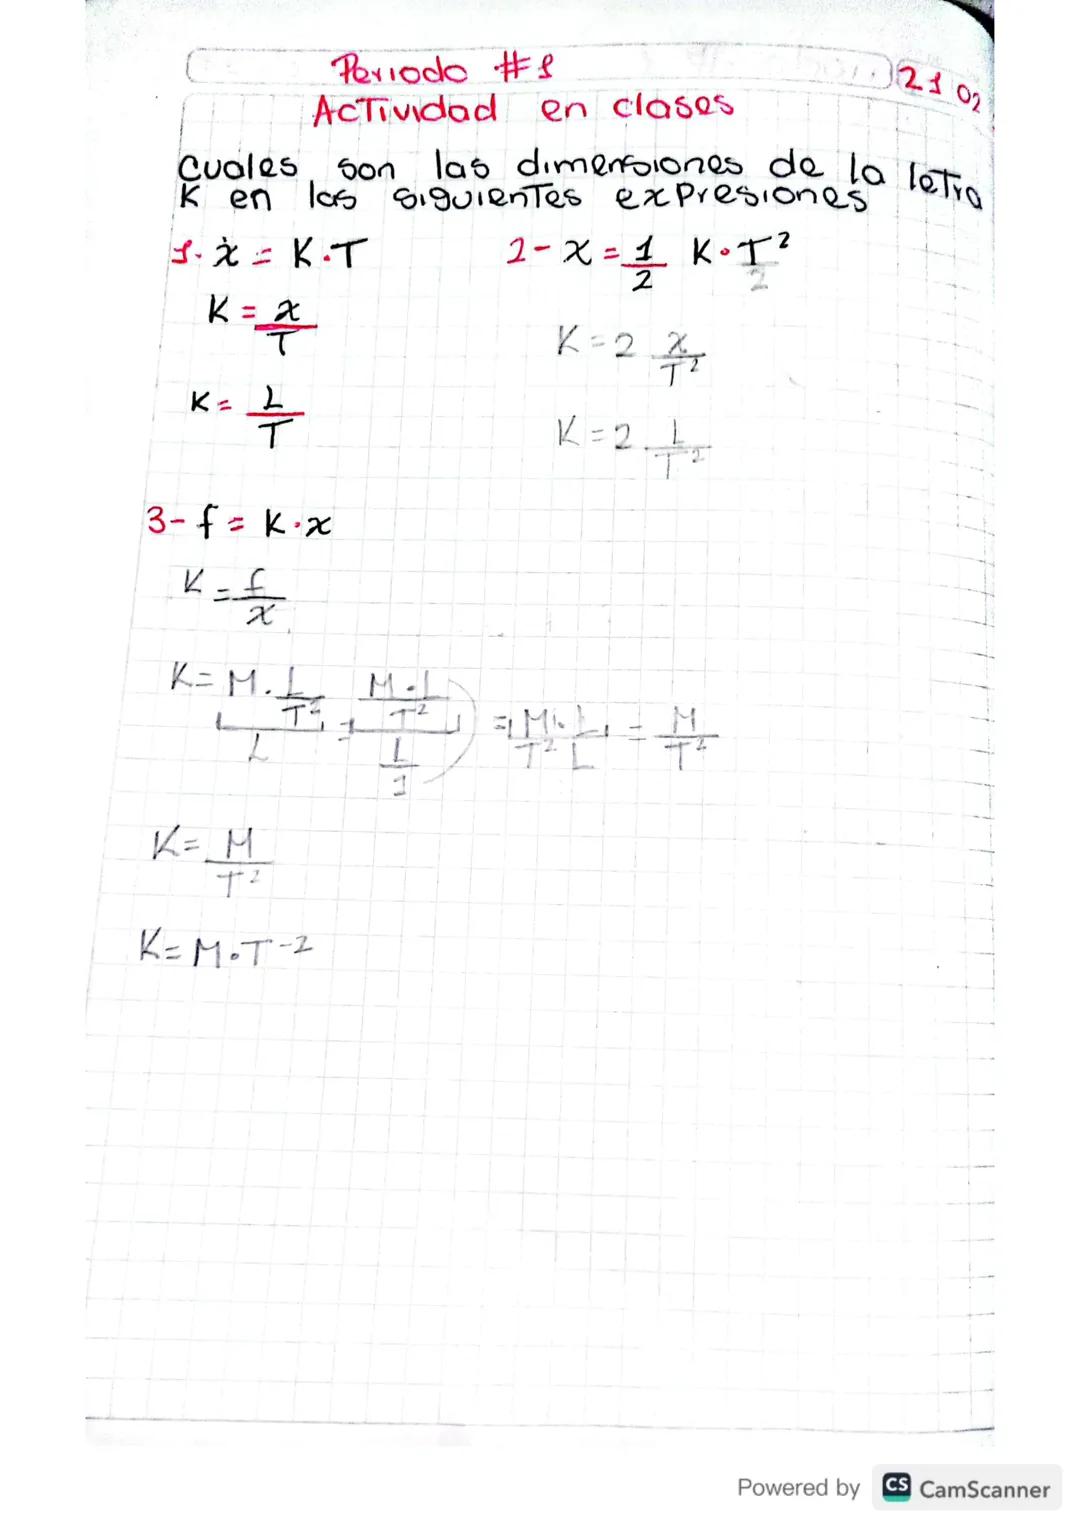 Periodo #1
21 02
Actividad en clases
Cuales son las dimensiones de la letra
K en las siguientes expresiones
1. ẋ = K.T
2- x = 1/2 K·T²/2
K = x/T
K = 2 x/T²
K = L/T
K = 2 L/T²
3- f = K·x
K = f/x
K = M·L/T² / L = M·L/T² / L/1 = M·L/T² L = M/T²
K = M/T²
K = M·T⁻²
Powered by CS CamScanner